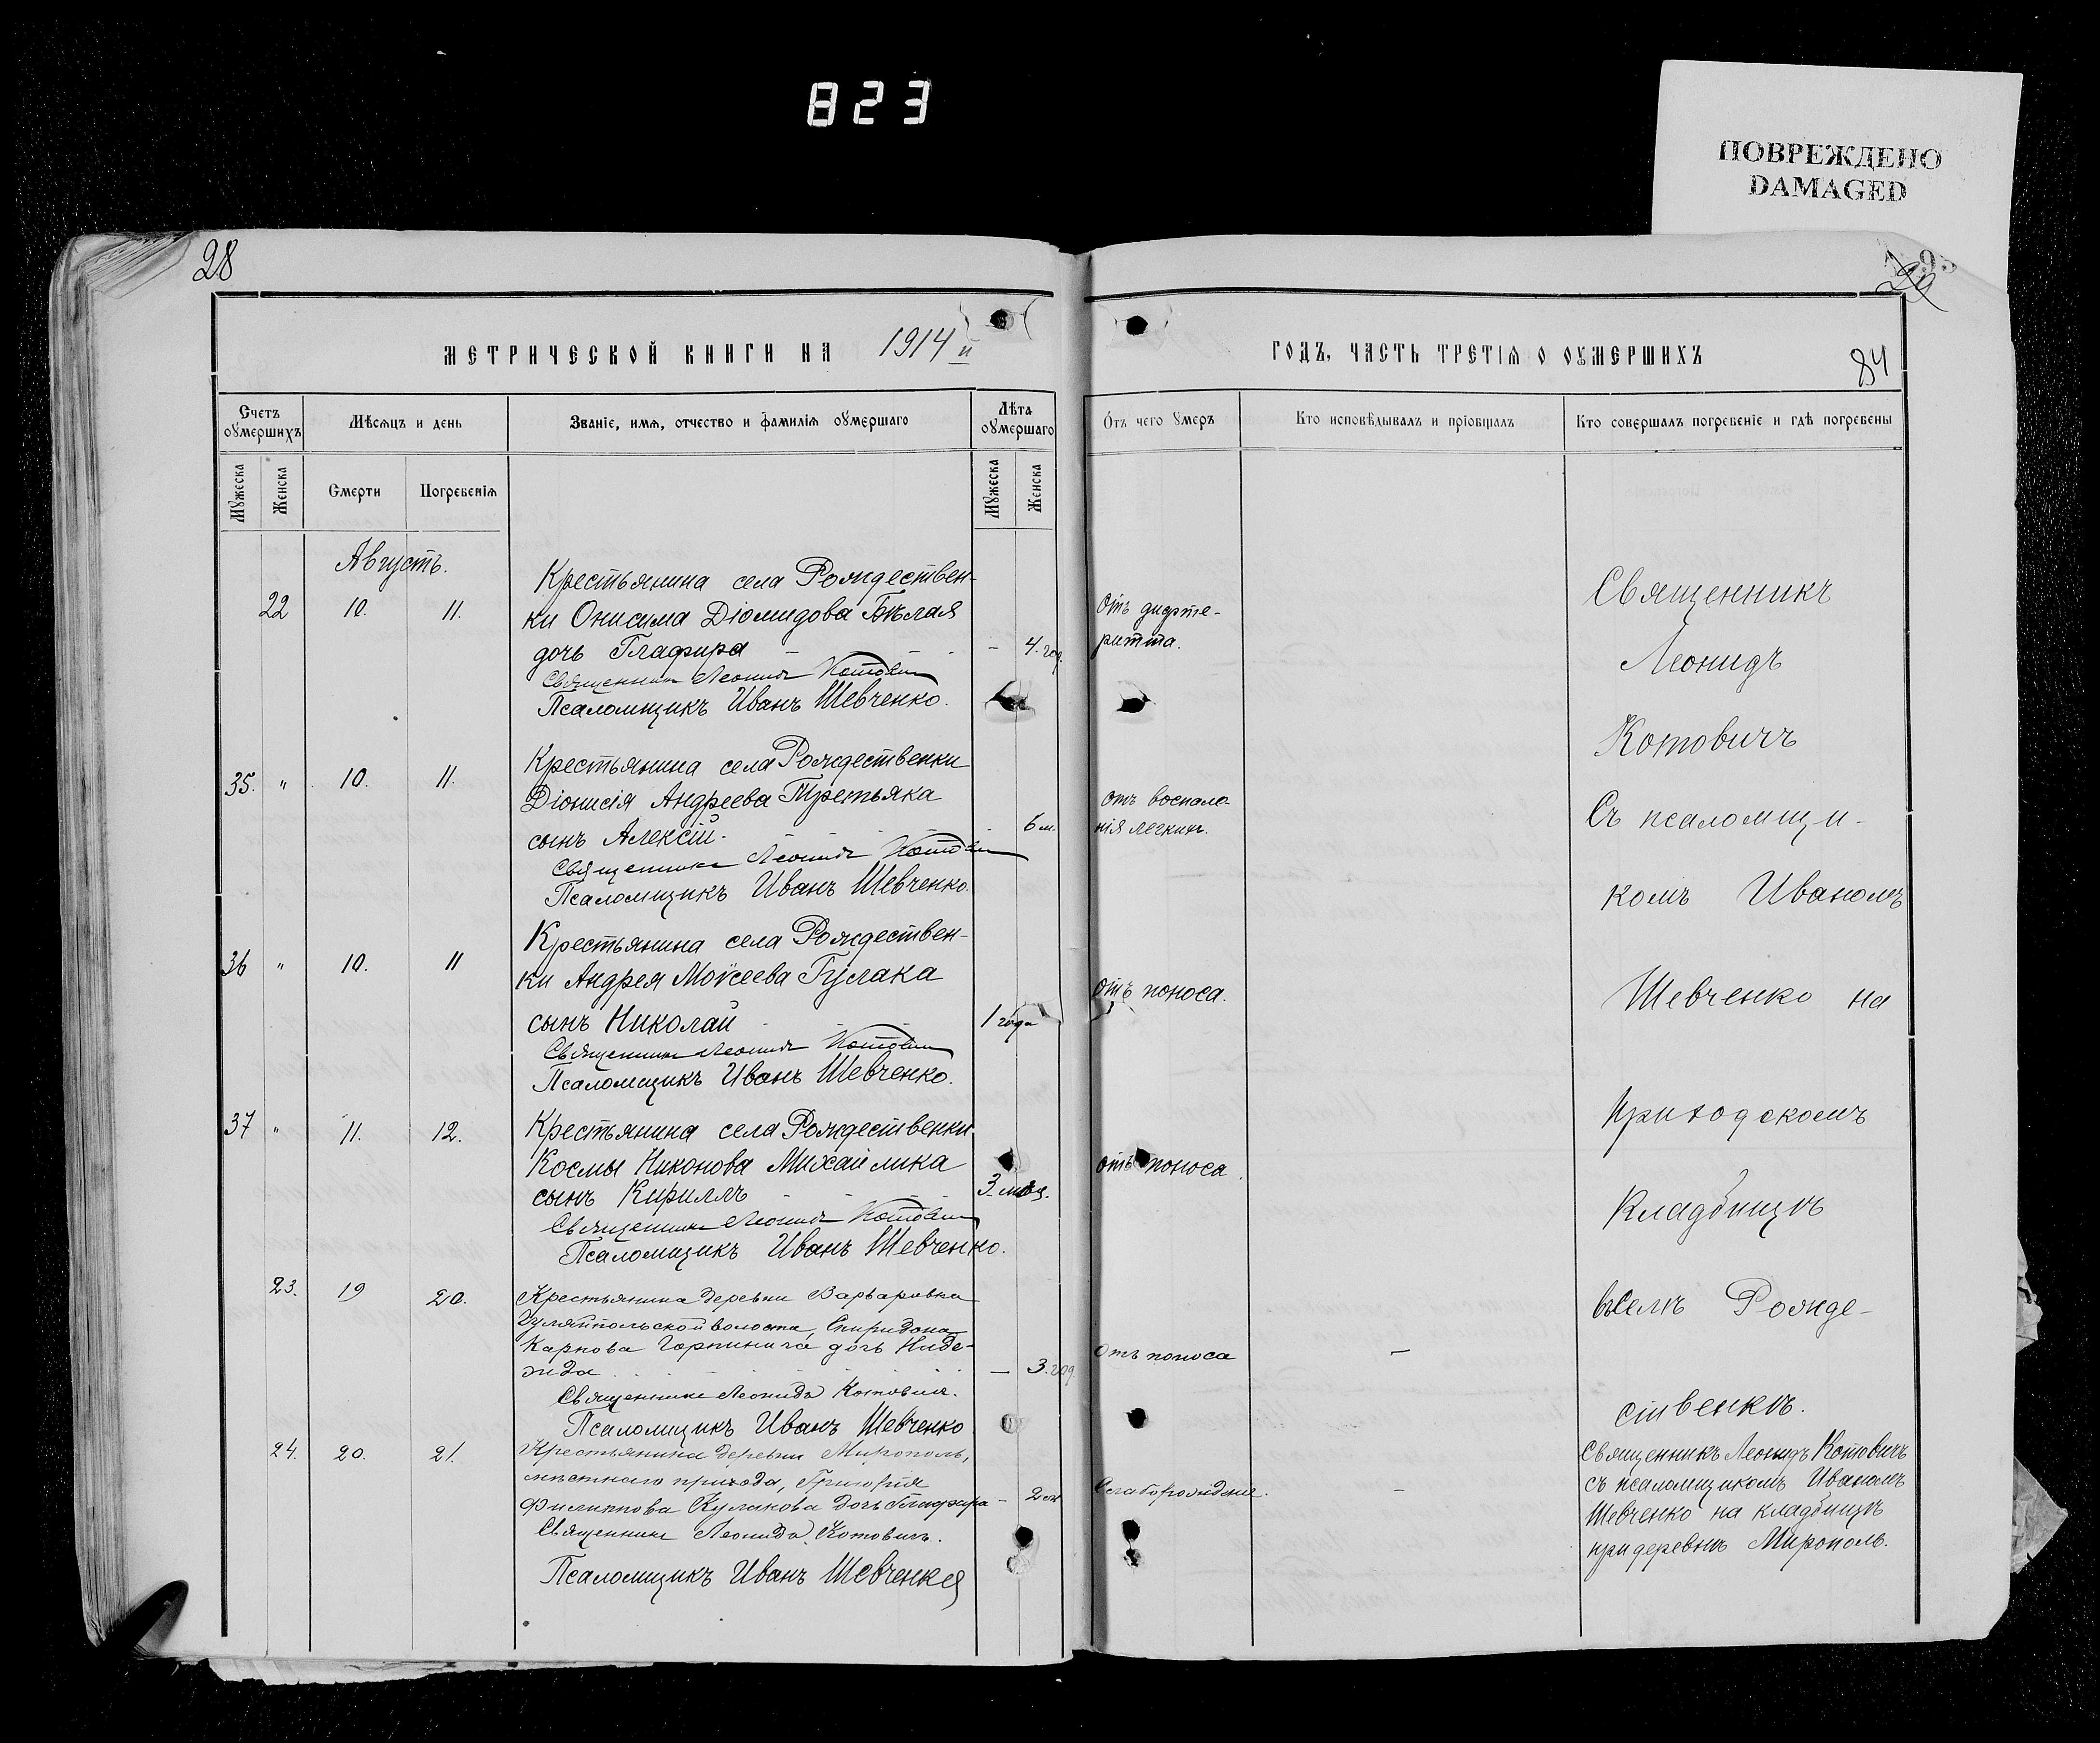 823
ПОВРЕЖДЕНО
DAMAGED
28
29
МЕТРИЧЕСКОЙ КНИГИ НА 1914 й
ГОДЪ, ЧАСТЬ ТРЕТІѦ О ОУМЕРШИХЪ
84
Счетъ оумершихъ
Мѣсѧцъ и день
Званіе, имѧ, отчество и фамиліѧ оумершаго
Лѣта оумершаго
Отъ чего умеръ
Кто исповѣдывалъ и пріобщалъ
Кто совершалъ погребеніе и гдѣ погребены
Мужеска
Женска
Смерти
Погребеніѧ
Мужеска
Женска
Августъ.
Крестьянина села Рождествен-
22 10. 11. ки Онисима Діомидова Бѣлая
дочь Глафира - 4. год.
Священникъ Леонидъ Котович
Псаломщикъ Иванъ Шевченко.
отъ дифте-
ритта.
Крестьянина села Рождественки
35. " 10. 11. Діонисія Андреева Третьяка
сынъ Алексій. 6 м.
Священникъ Леонидъ Котович
Псаломщикъ Иванъ Шевченко.
отъ воспале-
нія легкихъ.
Крестьянина села Рождествен-
36 " 10. 11 ки Андрея Моѵсеева Гулака
сынъ Николай 1 года
Священникъ Леонидъ Котович
Псаломщикъ Иванъ Шевченко.
отъ поноса.
37 " 11. 12. Крестьянина села Рождественки
Космы Никонова Михайлика
сынъ Кириллъ 3. мѣс.
Священникъ Леонидъ Котович
Псаломщикъ Иванъ Шевченко.
отъ поноса.
23. 19 20. Крестьянина деревни Варваровки
Гуляйпольской волости, Спиридона
Карпова Горпинича дочь Наде-
жда — 3. год
Священникъ Леонидъ Котовичъ.
Псаломщикъ Иванъ Шевченко
Отъ поноса —
24. 20. 21. Крестьянина деревни Мирополь,
мѣстнаго прихода, Григорія
Филиппова Кулакова дочь Глафира -
Священникъ Леонидъ Котовичъ.
Псаломщикъ Иванъ Шевченко
Слаборожденіе. -
Священникъ
Леонидъ
Котовичъ
Съ псаломщи-
комъ Иваномъ
Шевченко на
приходскомъ
кладбищѣ
въ селѣ Рожде-
ственкѣ.
Священникъ Леонидъ Котовичъ
съ псаломщикомъ Иваномъ
Шевченко на кладбищѣ
при деревнѣ Мирополь.